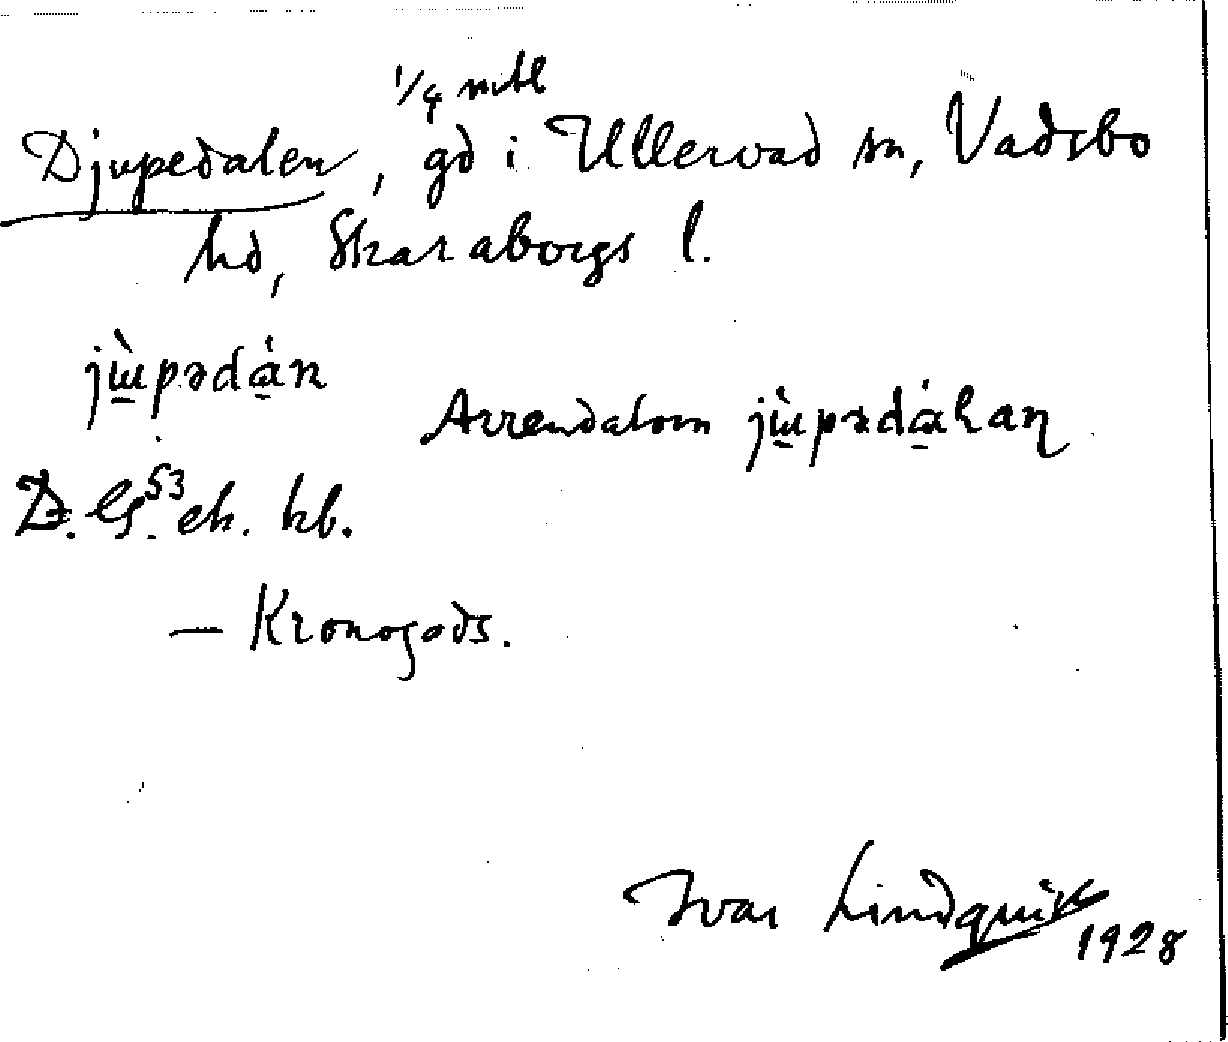 1/4 mtl
Djupedalen, gd i Ullervad sn, Vadsbo
hd, Skaraborgs l.
jɯ̀pədán
Arrendatorn jɯ̀pədáhaɳ
D. G. 53 ek. kb.
— Kronogods.
Ivar Lindquist
1928